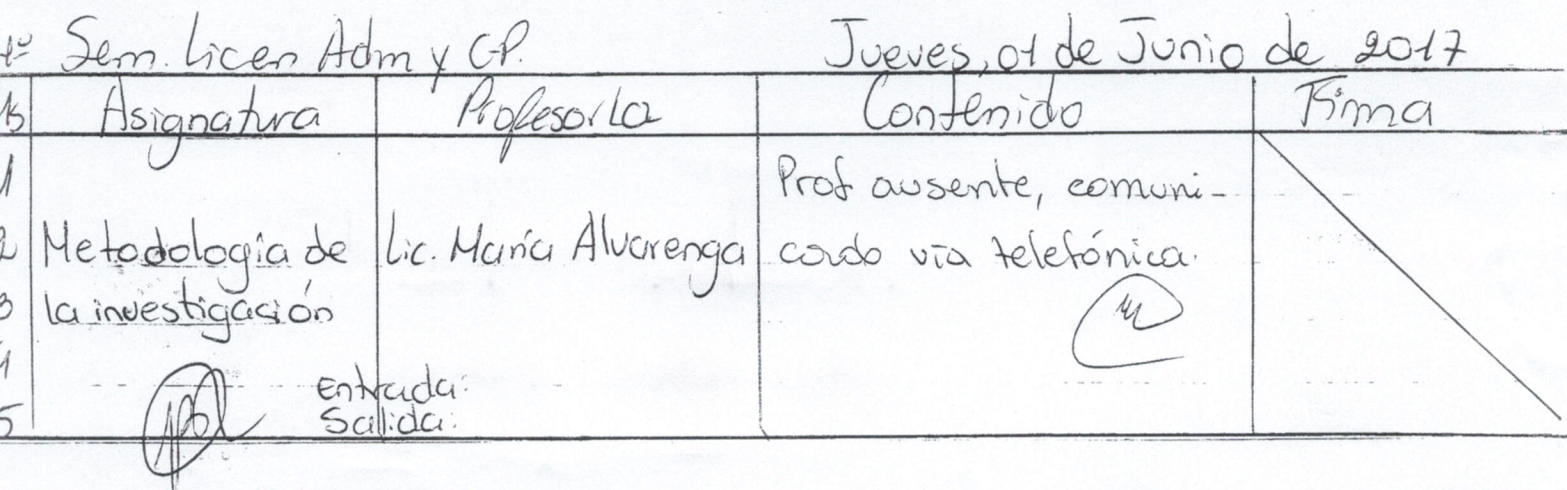 Sem. Licen Adm y CP. Jueves, 01 de Junio de 2017
Asignatura Profesor/a Contenido Firma
1 Prof ausente, comuni-
2 Metodología de Lic. María Alvarenga cado vía telefónica.
3 la investigación
4 Entrada.
5 Salida.